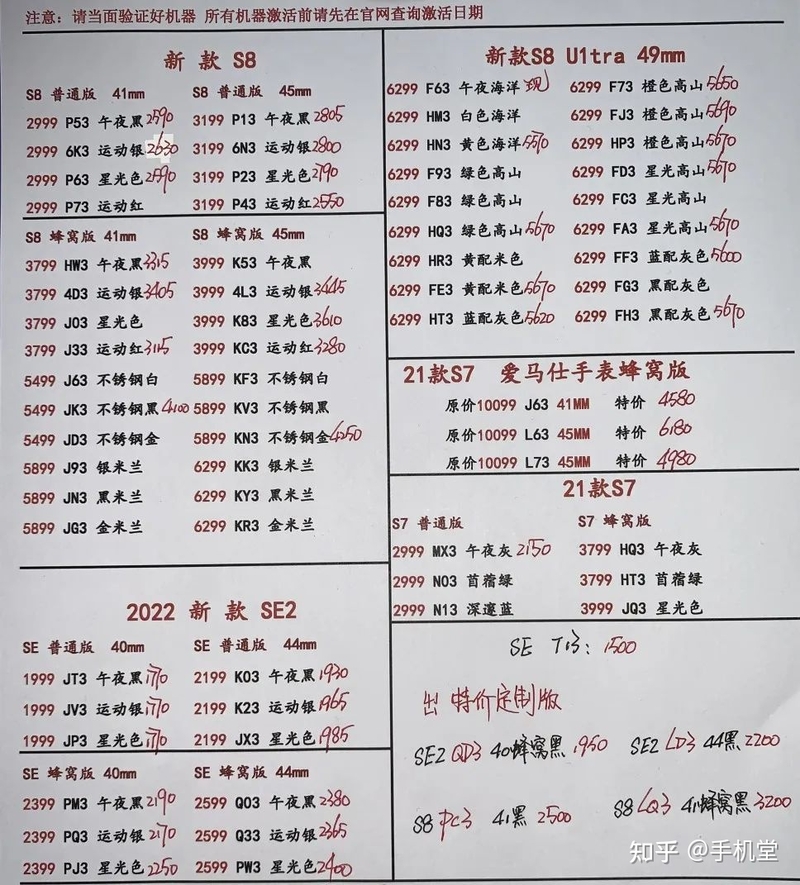 注意：请当面验证好机器 所有机器激活前请先在官网查询激活日期
新 款 S8
S8 普通版 41mm
2999 P53 午夜黑 2590
2999 6K3 运动银 2630
2999 P63 星光色 2590
2999 P73 运动红
S8 普通版 45mm
3199 P13 午夜黑 2805
3199 6N3 运动银 2800
3199 P23 星光色 2790
3199 P43 运动红 2550
S8 蜂窝版 41mm
3799 HW3 午夜黑 3315
3799 4D3 运动银 3405
3799 J03 星光色
3799 J33 运动红 3115
5499 J63 不锈钢白
5499 JK3 不锈钢黑 4100
5499 JD3 不锈钢金
5899 J93 银米兰
5899 JN3 黑米兰
5899 JG3 金米兰
S8 蜂窝版 45mm
3999 K53 午夜黑
3999 4L3 运动银 3445
3999 K83 星光色 3610
3999 KC3 运动红 3280
5899 KF3 不锈钢白
5899 KV3 不锈钢黑
5899 KN3 不锈钢金 4250
6299 KK3 银米兰
6299 KY3 黑米兰
6299 KR3 金米兰
2022 新 款 SE2
SE 普通版 40mm
1999 JT3 午夜黑 1770
1999 JV3 运动银 1770
1999 JP3 星光色 1770
SE 普通版 44mm
2199 K03 午夜黑 1930
2199 K23 运动银 1965
2199 JX3 星光色 1985
SE 蜂窝版 40mm
2399 PM3 午夜黑 2190
2399 PQ3 运动银 2170
2399 PJ3 星光色 2250
SE 蜂窝版 44mm
2599 Q03 午夜黑 2380
2599 Q33 运动银 2365
2599 PW3 星光色 2400
新款S8 U1tra 49mm
6299 F63 午夜海洋 现
6299 HM3 白色海洋
6299 HN3 黄色海洋 5570
6299 F93 绿色高山
6299 F83 绿色高山
6299 HQ3 绿色高山 5670
6299 HR3 黄配米色
6299 FE3 黄配米色 5670
6299 HT3 蓝配灰色 5620
6299 F73 橙色高山 5650
6299 FJ3 橙色高山 5690
6299 HP3 橙色高山 5670
6299 FD3 星光高山 5670
6299 FC3 星光高山
6299 FA3 星光高山 5670
6299 FF3 蓝配灰色 5600
6299 FG3 黑配灰色
6299 FH3 黑配灰色 5670
21款S7 爱马仕手表蜂窝版
原价10099 J63 41MM 特价 4580
原价10099 L63 45MM 特价 6180
原价10099 L73 45MM 特价 4980
21款S7
S7 普通版
2999 MX3 午夜灰 2150
2999 N03 苜蓿绿
2999 N13 深邃蓝
S7 蜂窝版
3799 HQ3 午夜灰
3799 HT3 苜蓿绿
3999 JQ3 星光色
SE T13: 1500
出 特价定制版
SE2 QD3 40蜂窝黑 1950
SE2 LD3 44黑 2200
S8 PC3 41黑 2500
S8 LQ3 41蜂窝黑 3200
知乎 @手机堂